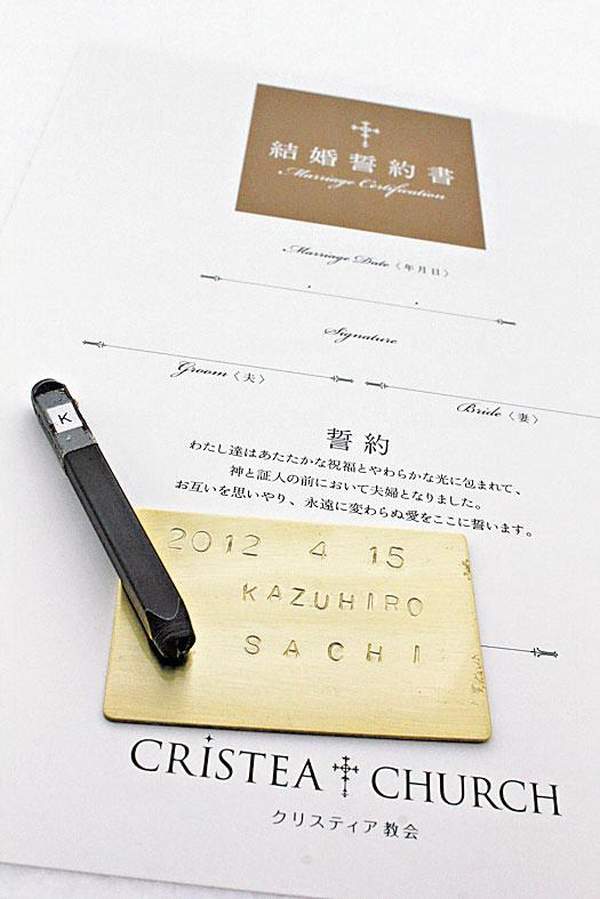 結婚誓約書
Marriage Certification
Marriage Date〈年月日〉
Signature
Groom〈夫〉
Bride〈妻〉
誓約
わたし達はあたたかな祝福とやわらかな光に包まれて、
神と証人の前において夫婦となりました。
お互いを思いやり、永遠に変わらぬ愛をここに誓います。
K
2012 4 15
KAZUHIRO
SACHI
CRISTEA CHURCH
クリスティア教会